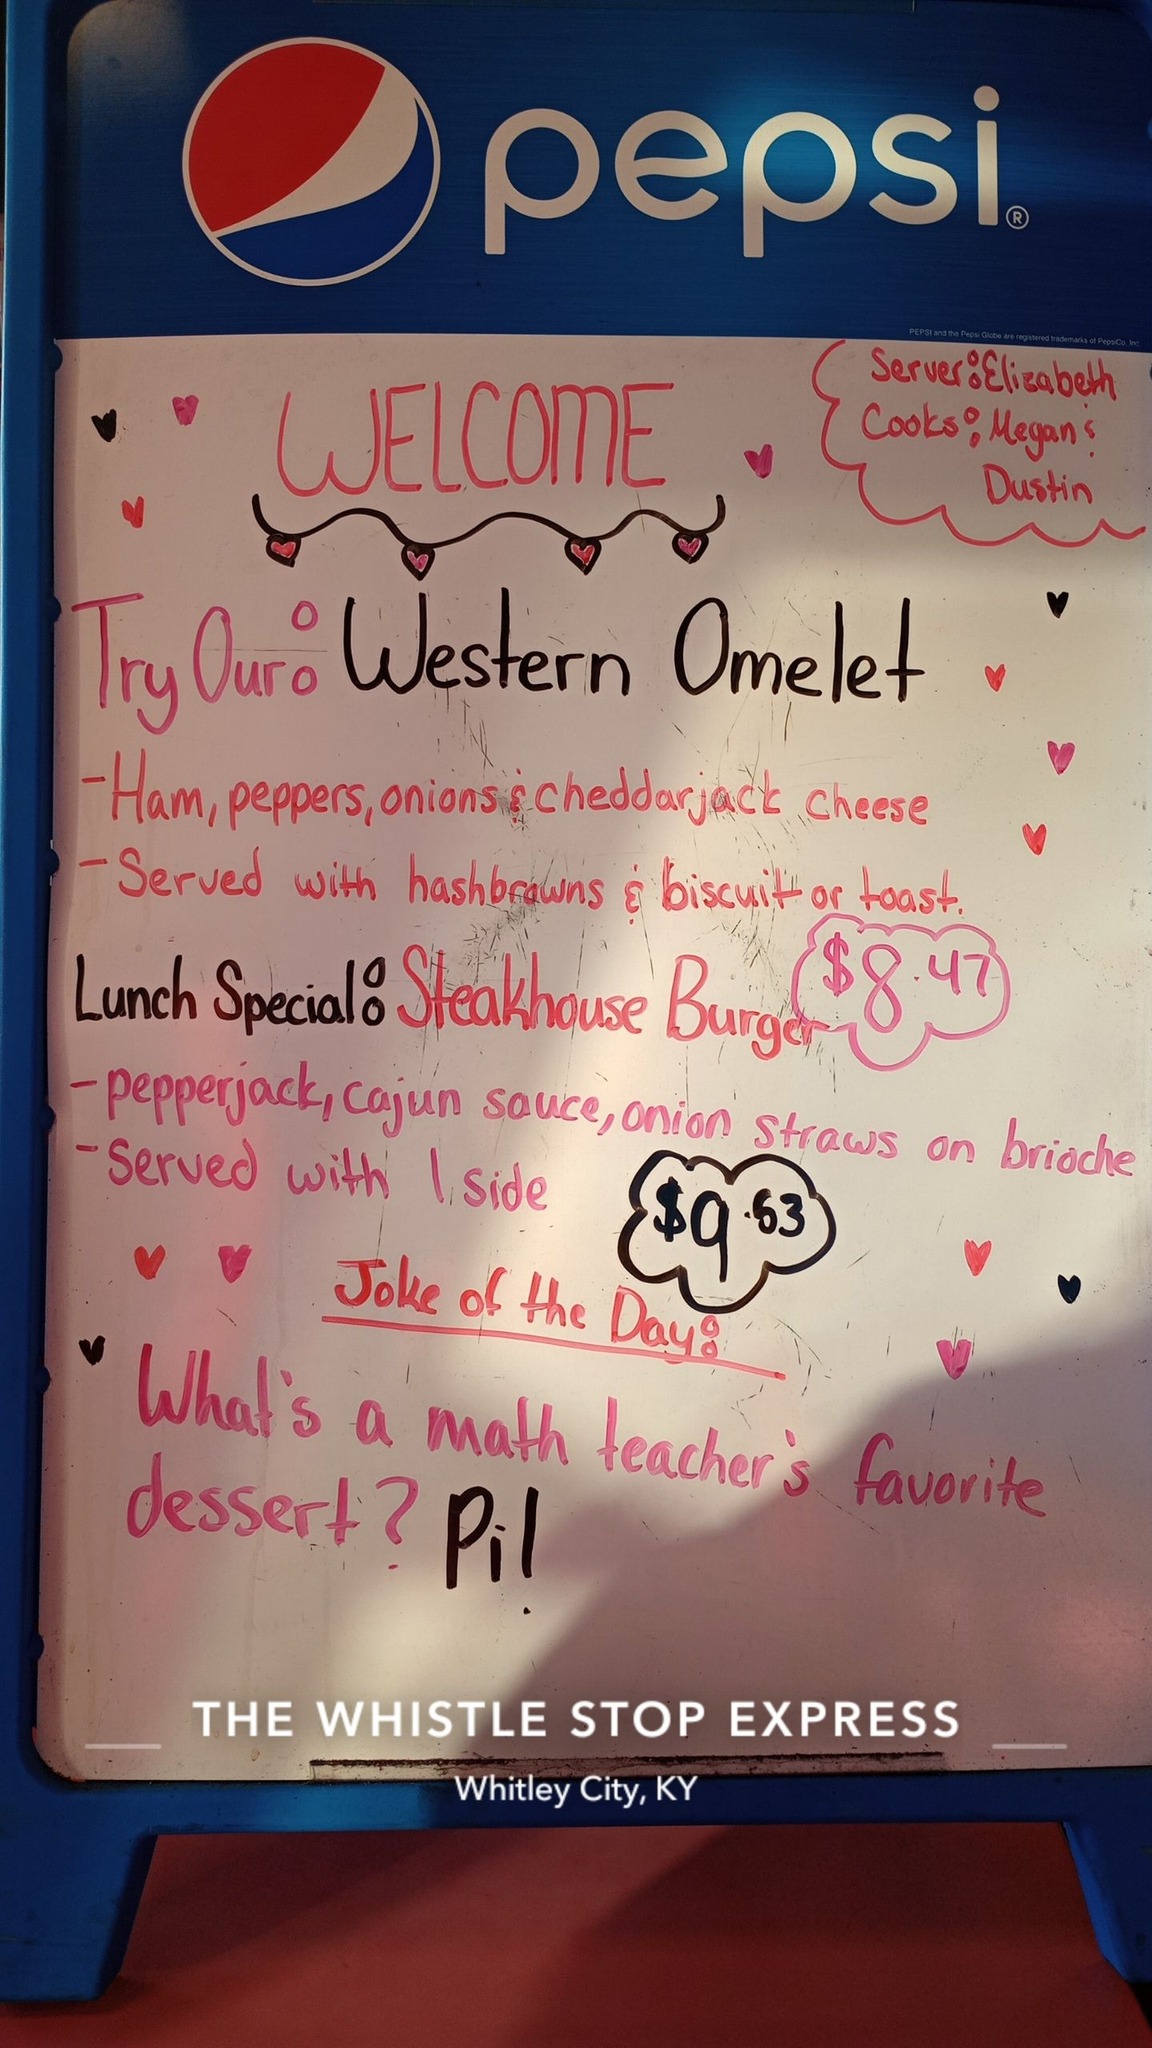 pepsi®
PEPSI and the Pepsi Globe are registered trademarks of PepsiCo, Inc.
Server: Elizabeth
Cooks: Megan &
Dustin
WELCOME
Try Our: Western Omelet
- Ham, peppers, onions & cheddarjack cheese
- Served with hashbrowns & biscuit or toast.
$8.47
Lunch Special: Steakhouse Burger
- pepperjack, cajun sauce, onion straws on brioche
- Served with 1 side
$9.63
Joke of the Day:
What's a math teacher's favorite
dessert? Pi!
THE WHISTLE STOP EXPRESS
Whitley City, KY